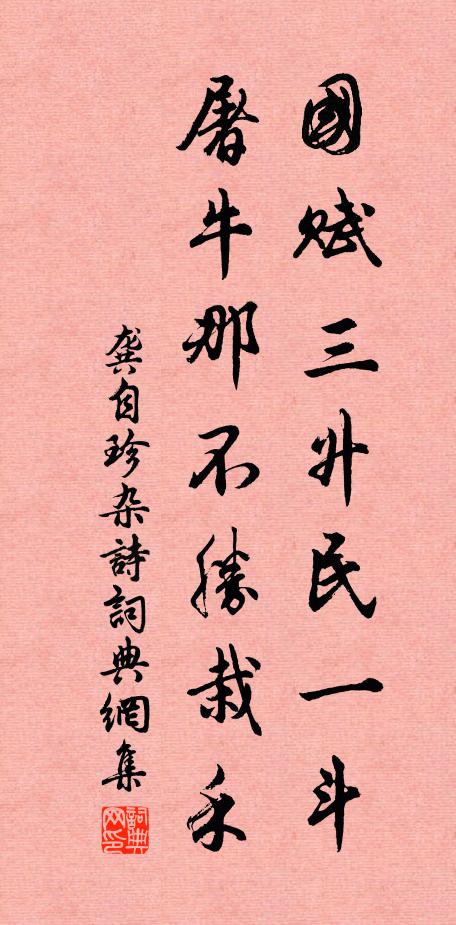 國賦三升民一斗
屠牛那不勝栽禾
龔自珍杂詩詞典網集
詞典網印